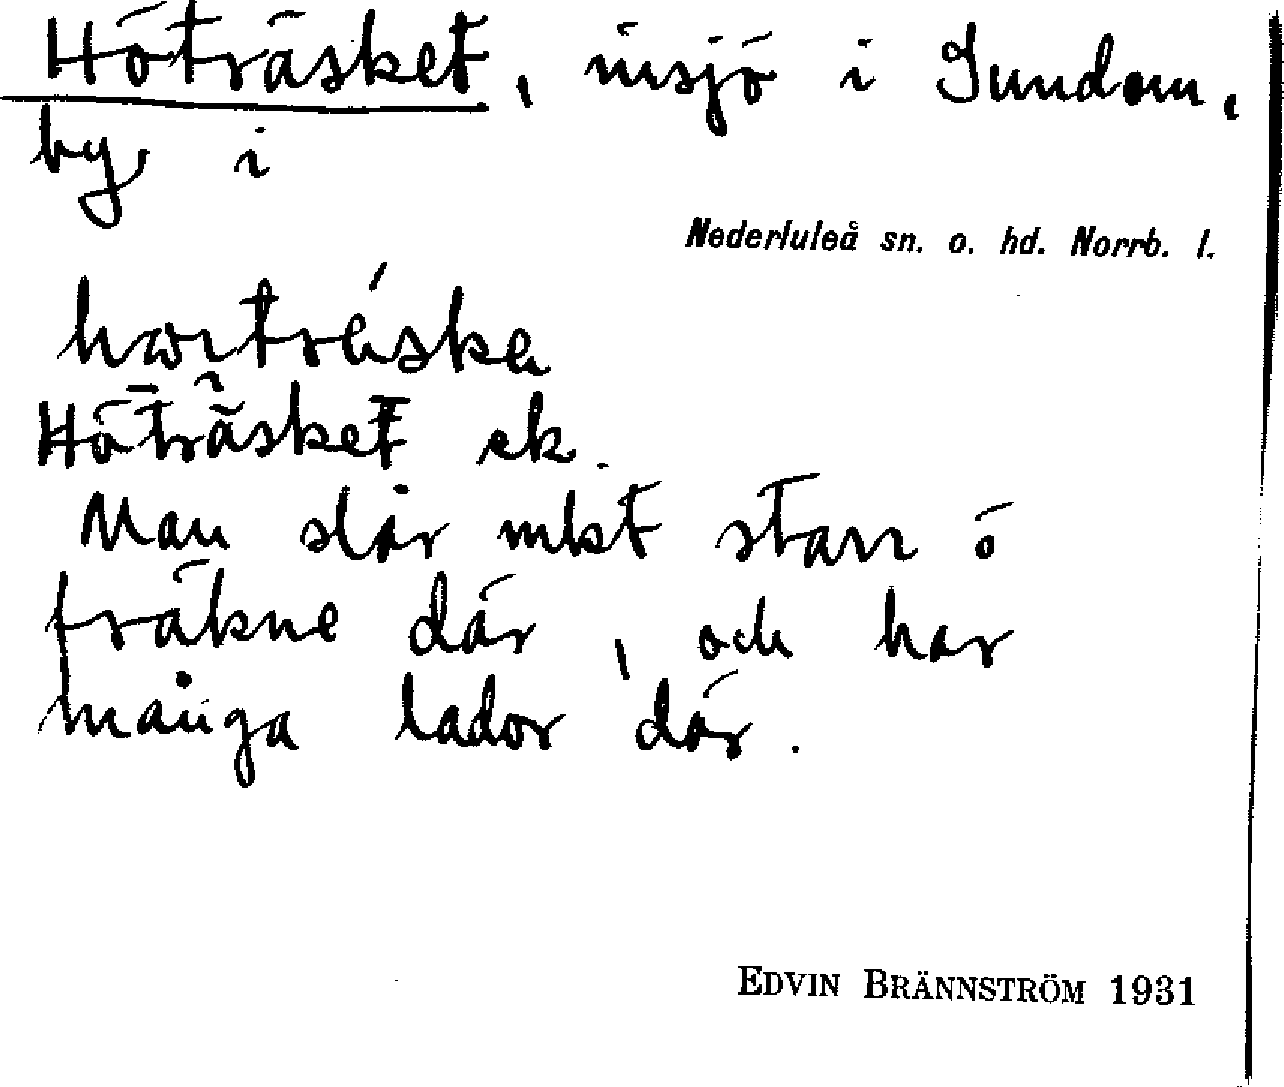 Höträsket, insjö i Sundom,
by i
Nederluleå sn. o. hd. Norrb. l.
Höträsket ek.
Man slår mkt starr ö
fräkne där, och har
många lador där.
EDVIN BRÄNNSTRÖM 1931